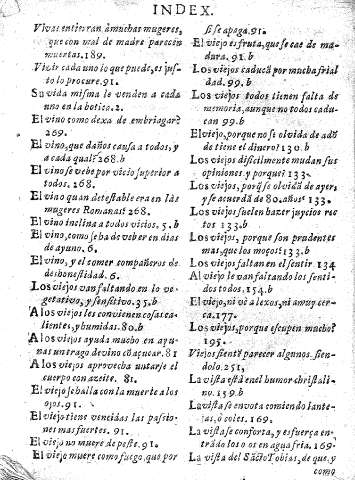 INDEX.
Vivas entierran à muchas mugeres,
que con mal de madre parecen
muertas. 189.
Vivir cada uno lo que puede, es jus-
to lo procure. 91.
Su vida misma le venden a cada
uno en la botica. 2.
El vino como dexa de embriagar?
269.
El vino, que daños causa a todos, y
a cada qual? 268. b
El vino se bebe por vicio superior a
todos. 168.
El vino quan detestable era en las
mugeres Romanas? 268.
El vino inclina a todos vicios. 5. b
El vino, como se ha de veber en dias
de ayuno. 6.
El vino, y el comer compañeros de
deshonestidad. 6.
Los viejos van faltando en lo ve-
getativo, y sensitivo. 35, b
A los viejos les convienen cosas ca-
lientes, y humidas. 80. b
A los viejos ayuda mucho en ayu-
nas un trago de vino cõ açucar. 81
A los viejos aprovecha untarse el
cuerpo con azeite. 81.
El viejo se halla con la muerte a los
ojos. 91.
El viejo tiene vencidas las passio-
nes mas fuertes. 91.
El viejo no muere de peste. 91.
El viejo muere como fuego, que por
si se apaga. 91.
El viejo es fruta, que se cae de ma-
dura. 91. b
Los viejos caducã por mucha frial
dad. 99. b
Los viejos todos tienen falta de
memoria, aunque no todos cadu-
can. 99. b
El viejo, porque no se olvida de adõ
de tiene el dinero? 130. b
Los viejos dificilmente mudan sus
opiniones, y porque? 133.
Los viejos, porq̃ se olvidã de ayer,
y se acuerdã de 80. años? 133.
Los viejos suelen hazer juycios rec
tos 133. b
Los viejos, porque son prudentes
mas, que los moços? 133. b
Los viejos faltan en el sentir 134
Al viejo le van faltando los senti-
dos todos. 154. b
El viejo, ni vè a lexos, ni muy cer-
ca. 177.
Los viejos, porque escupen mucho?
195.
Viejos siente parecer algunos. sien-
dolo. 251,
La vista està en el humor christali-
no. 159. b
La vista se envota comiendo lante-
jas, ò coles. 169.
La vista se conforta, y esfuerça en-
trãdo los ojos en agua fria. 169.
La vista del Sãcto Tobias, de que, y
como